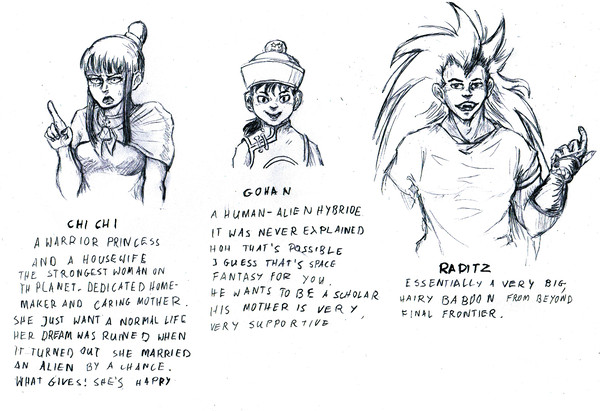 CHI CHI
A WARRIOR PRINCESS
AND A HOUSEWIFE
THE STRONGEST WOMAN ON
TH PLANET. DEDICATED HOME-
MAKER AND CARING MOTHER.
SHE JUST WANT A NORMAL LIFE
HER DREAM WAS RUINED WHEN
IT TURNED OUT SHE MARRIED
AN ALIEN BY A CHANCE.
WHAT GIVES! SHE'S HAPPY
GOHAN
A HUMAN-ALIEN HYBRIDE
IT WAS NEVER EXPLAINED
HOH THAT'S POSSIBLE
I GUESS THAT'S SPACE
FANTASY FOR YOU.
HE WANTS TO BE A SCHOLAR
HIS MOTHER IS VERY,
VERY SUPPORTIVE
RADITZ
ESSENTIALLY A VERY BIG,
HAIRY BABOON FROM BEYOND
FINAL FRONTIER.